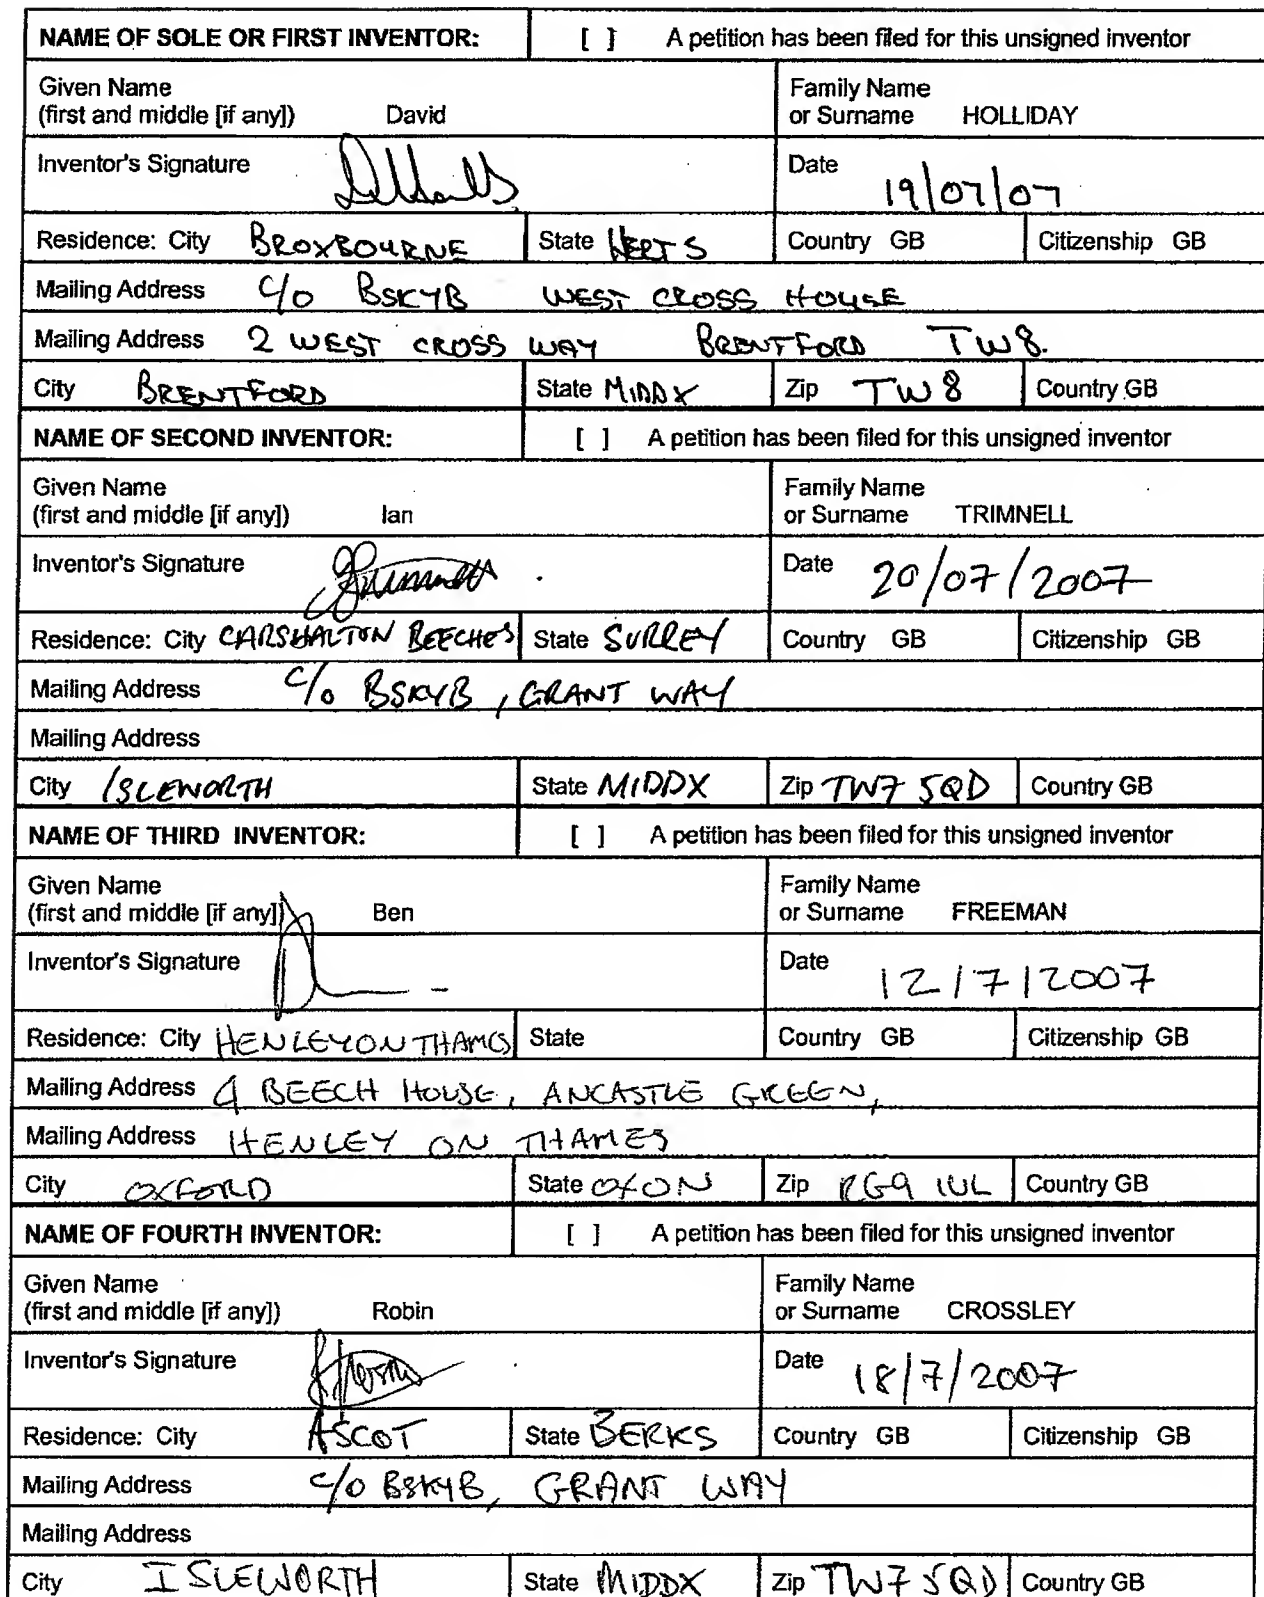 NAME OF SOLE OR FIRST INVENTOR: [ ] A petition has been filed for this unsigned inventor
Given Name Family Name
(first and middle [if any]) David or Surname HOLLIDAY
Inventor's Signature Date 19/07/07
Residence: City BROXBOURNE State HERTS Country GB Citizenship GB
Mailing Address C/O BSKYB WEST CROSS HOUSE
Mailing Address 2 WEST CROSS WAY BRENTFORD TW8.
City BRENTFORD State MIDDX Zip TW8 Country GB
NAME OF SECOND INVENTOR: [ ] A petition has been filed for this unsigned inventor
Given Name Family Name
(first and middle [if any]) Ian or Surname TRIMNELL
Inventor's Signature Date 20/07/2007
Residence: City CARSHALTON BEECHES State SURREY Country GB Citizenship GB
Mailing Address C/O BSKYB, GRANT WAY
Mailing Address
City ISLEWORTH State MIDDX Zip TW7 5QD Country GB
NAME OF THIRD INVENTOR: [ ] A petition has been filed for this unsigned inventor
Given Name Family Name
(first and middle [if any]) Ben or Surname FREEMAN
Inventor's Signature Date 12/7/2007
Residence: City HENLEY ON THAMES State Country GB Citizenship GB
Mailing Address 4 BEECH HOUSE, ANCASTLE GREEN,
Mailing Address HENLEY ON THAMES
City OXFORD State OXON Zip RG9 1UL Country GB
NAME OF FOURTH INVENTOR: [ ] A petition has been filed for this unsigned inventor
Given Name Family Name
(first and middle [if any]) Robin or Surname CROSSLEY
Inventor's Signature Date 18/7/2007
Residence: City ASCOT State BERKS Country GB Citizenship GB
Mailing Address C/O BSKYB, GRANT WAY
Mailing Address
City ISLEWORTH State MIDDX Zip TW7 5QD Country GB